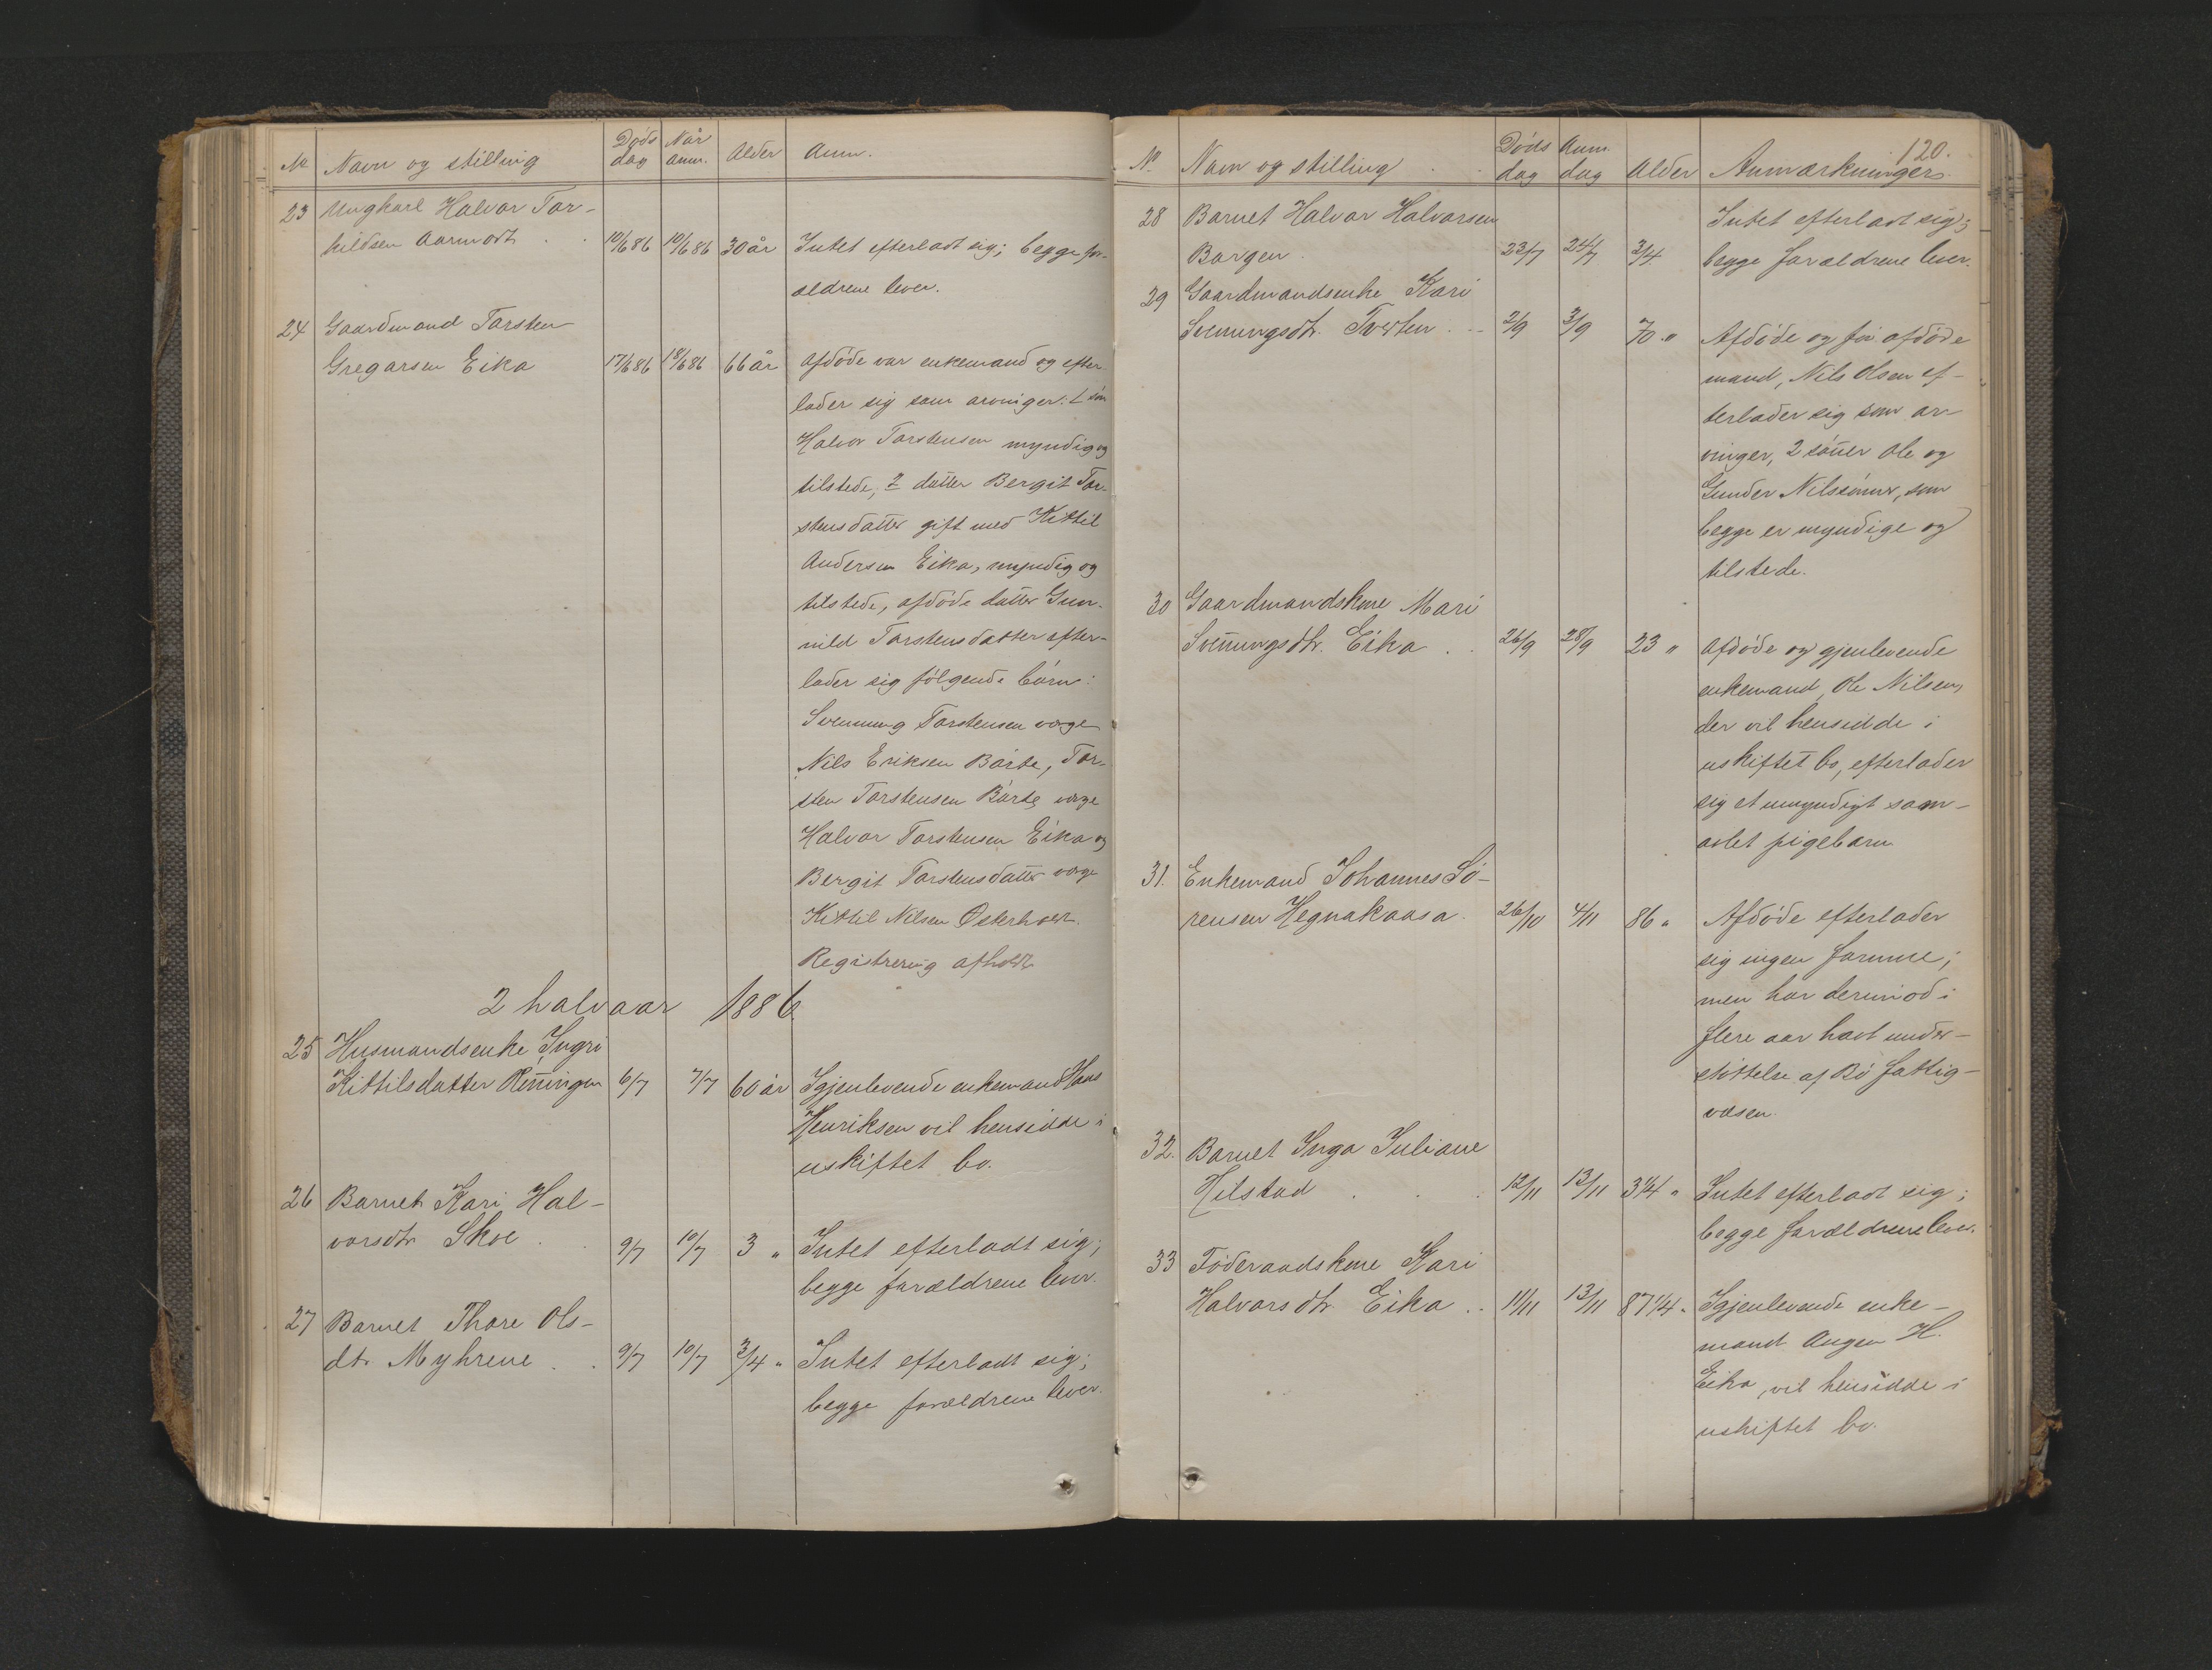 No Navn og stilling Døds dag Når anm. Alder Anm.
23 Ungkarl Halvor Tor-
kildsen Aarmodt . . 10/6 86 10/6 86 30 år Intet efterladt sig; begge for-
ældrene lever.
24 Gaardmand Torsten
Gregarsen Eika 17/6 86 18/6 86 66 år Afdøde var enkemand og efter-
lader sig som arvinger: 1 søn
Halvor Torstensen myndig og
tilstede, 2 datter Bergit Tor-
stensdatter gift med Kittil
Andersen Eika, myndig og
tilstede, afdøde datter Gun-
nild Torstensdatter efter-
lader sig følgende børn:
Svenning Torstensen værge
Nils Eriksen Børte, Tor-
sten Torstensen Børte, værge
Halvor Torstensen Eika og
Bergit Torstensdatter værge
Kittil Nilsen Østerholt.
Registrering afholdt
2 halvaar 1886.
25 Husmandsenke Ingri
Kittilsdatter Rønningen 6/7 7/7 60 år Igjenlevende enkemand Hans
Henriksen vil hensidde i
uskiftet bo.
26 Barnet Kari Hal-
vorsdtr Skoe . . 9/7 10/7 3 " Intet efterladt sig;
begge forældrene lever.
27 Barnet Thore Ols-
dtr Myhrene . . 9/7 10/7 3/4 " Intet efterladt sig;
begge forældrene lever.
120.
No Navn og stilling . . Døds dag Anm. dag Alder Anmærkninger.
28 Barnet Halvor Halvorsen Intet efterladt sig;
Borgen . 23/7 24/7 3/4 begge forældrene lever.
29 Gaardmandsenke Kari
Svenningsdtr. Tveten . . 2/9 3/9 70 " Afdøde og før afdøde
mand, Nils Olsen ef-
terlader sig som ar-
vinger, 2 sønner Ole og
Gunder Nilssønner, som
begge er myndige og
tilstede.
30 Gaardmandskone Mari
Svenningsdtr. Eika . . 26/9 28/9 23 " Afdøde og gjenlevende
enkemand, Ole Nilsen,
der vil hensidde i
uskiftet bo, efterlader
sig et umyndigt sam-
avlet pigebarn
31. Enkemand Johannes Sø-
rensen Hegnakaasa . 26/10 4/11 86 " Afdøde efterlader
sig ingen formue;
men har derimod i
flere aar havt under-
støttelse af Bø fattig-
væsen.
32. Barnet Inga Juliane
Hilstad . . . 12/11 13/11 3 1/4 " Intet efterladt sig;
begge forældrene lever.
33 Føderaadskone Kari
Halvorsdtr. Eika . . 11/11 13/11 87 1/4 " Igjenlevende enke-
mand Augen H.
Eika, vil hensidde i
uskiftet bo.